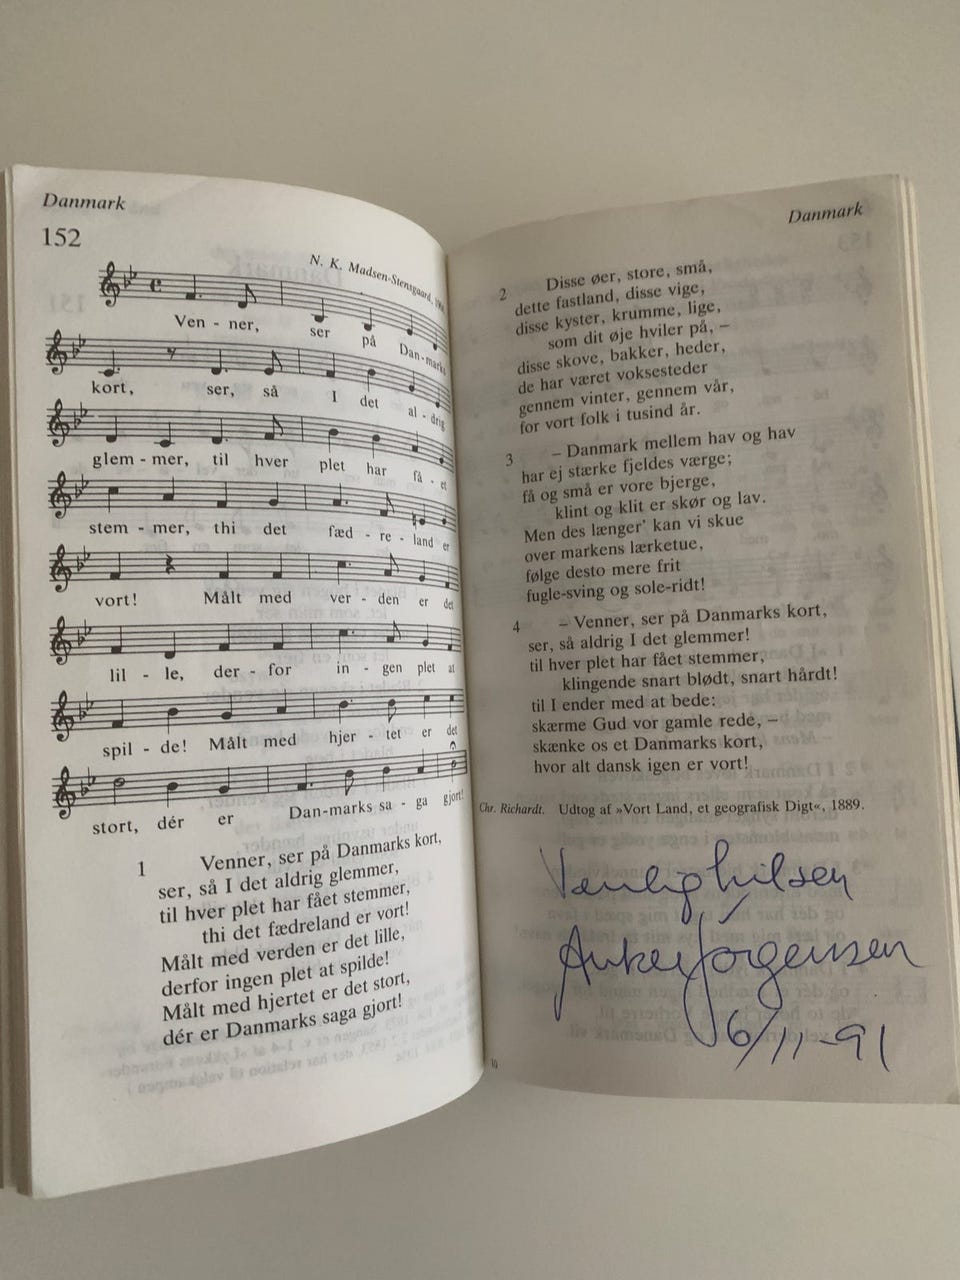 Danmark
152
N. K. Madsen-Stensgaard,
Ven - ner, ser på Dan - marks
kort, ser, så I det al - drig
glem - mer, til hver plet har få - et
stem - mer, thi det fæd - re - land er
vort! Målt med ver - den er det
lil - le, der - for in - gen plet at
spil - de! Målt med hjer - tet er det
stort, dér er Dan-marks sa - ga gjort!
1 Venner, ser på Danmarks kort,
ser, så I det aldrig glemmer,
til hver plet har fået stemmer,
thi det fædreland er vort!
Målt med verden er det lille,
derfor ingen plet at spilde!
Målt med hjertet er det stort,
dér er Danmarks saga gjort!
Danmark
2 Disse øer, store, små,
dette fastland, disse vige,
disse kyster, krumme, lige,
som dit øje hviler på, –
disse skove, bakker, heder,
de har været voksesteder
gennem vinter, gennem vår,
for vort folk i tusind år.
3 – Danmark mellem hav og hav
har ej stærke fjeldes værge;
få og små er vore bjerge,
klint og klit er skør og lav.
Men des længer' kan vi skue
over markens lærketue,
følge desto mere frit
fugle-sving og sole-ridt!
4 – Venner, ser på Danmarks kort,
ser, så aldrig I det glemmer!
til hver plet har fået stemmer,
klingende snart blødt, snart hårdt!
til I ender med at bede:
skærme Gud vor gamle rede, –
skænke os et Danmarks kort,
hvor alt dansk igen er vort!
Chr. Richardt. Udtog af »Vort Land, et geografisk Digt«, 1889.
Venlig hilsen
Anker Jørgensen
6/11-91
10